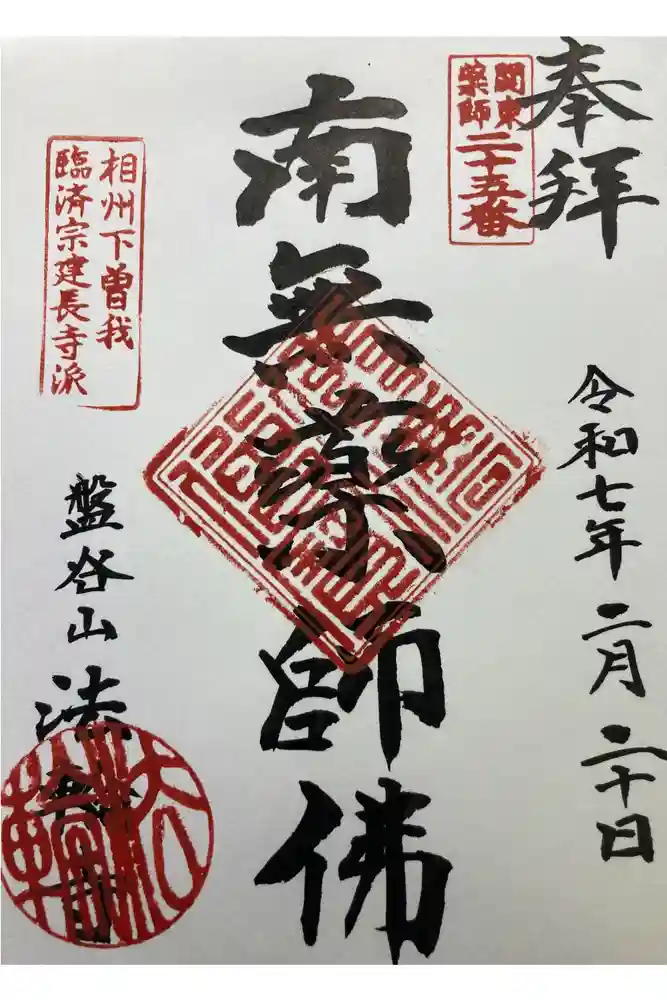 奉拝
関東
薬師
二十五番
令和七年 二月 二十日
南無薬師佛
相州下曽我
臨済宗建長寺派
盤谷山 法
法輪